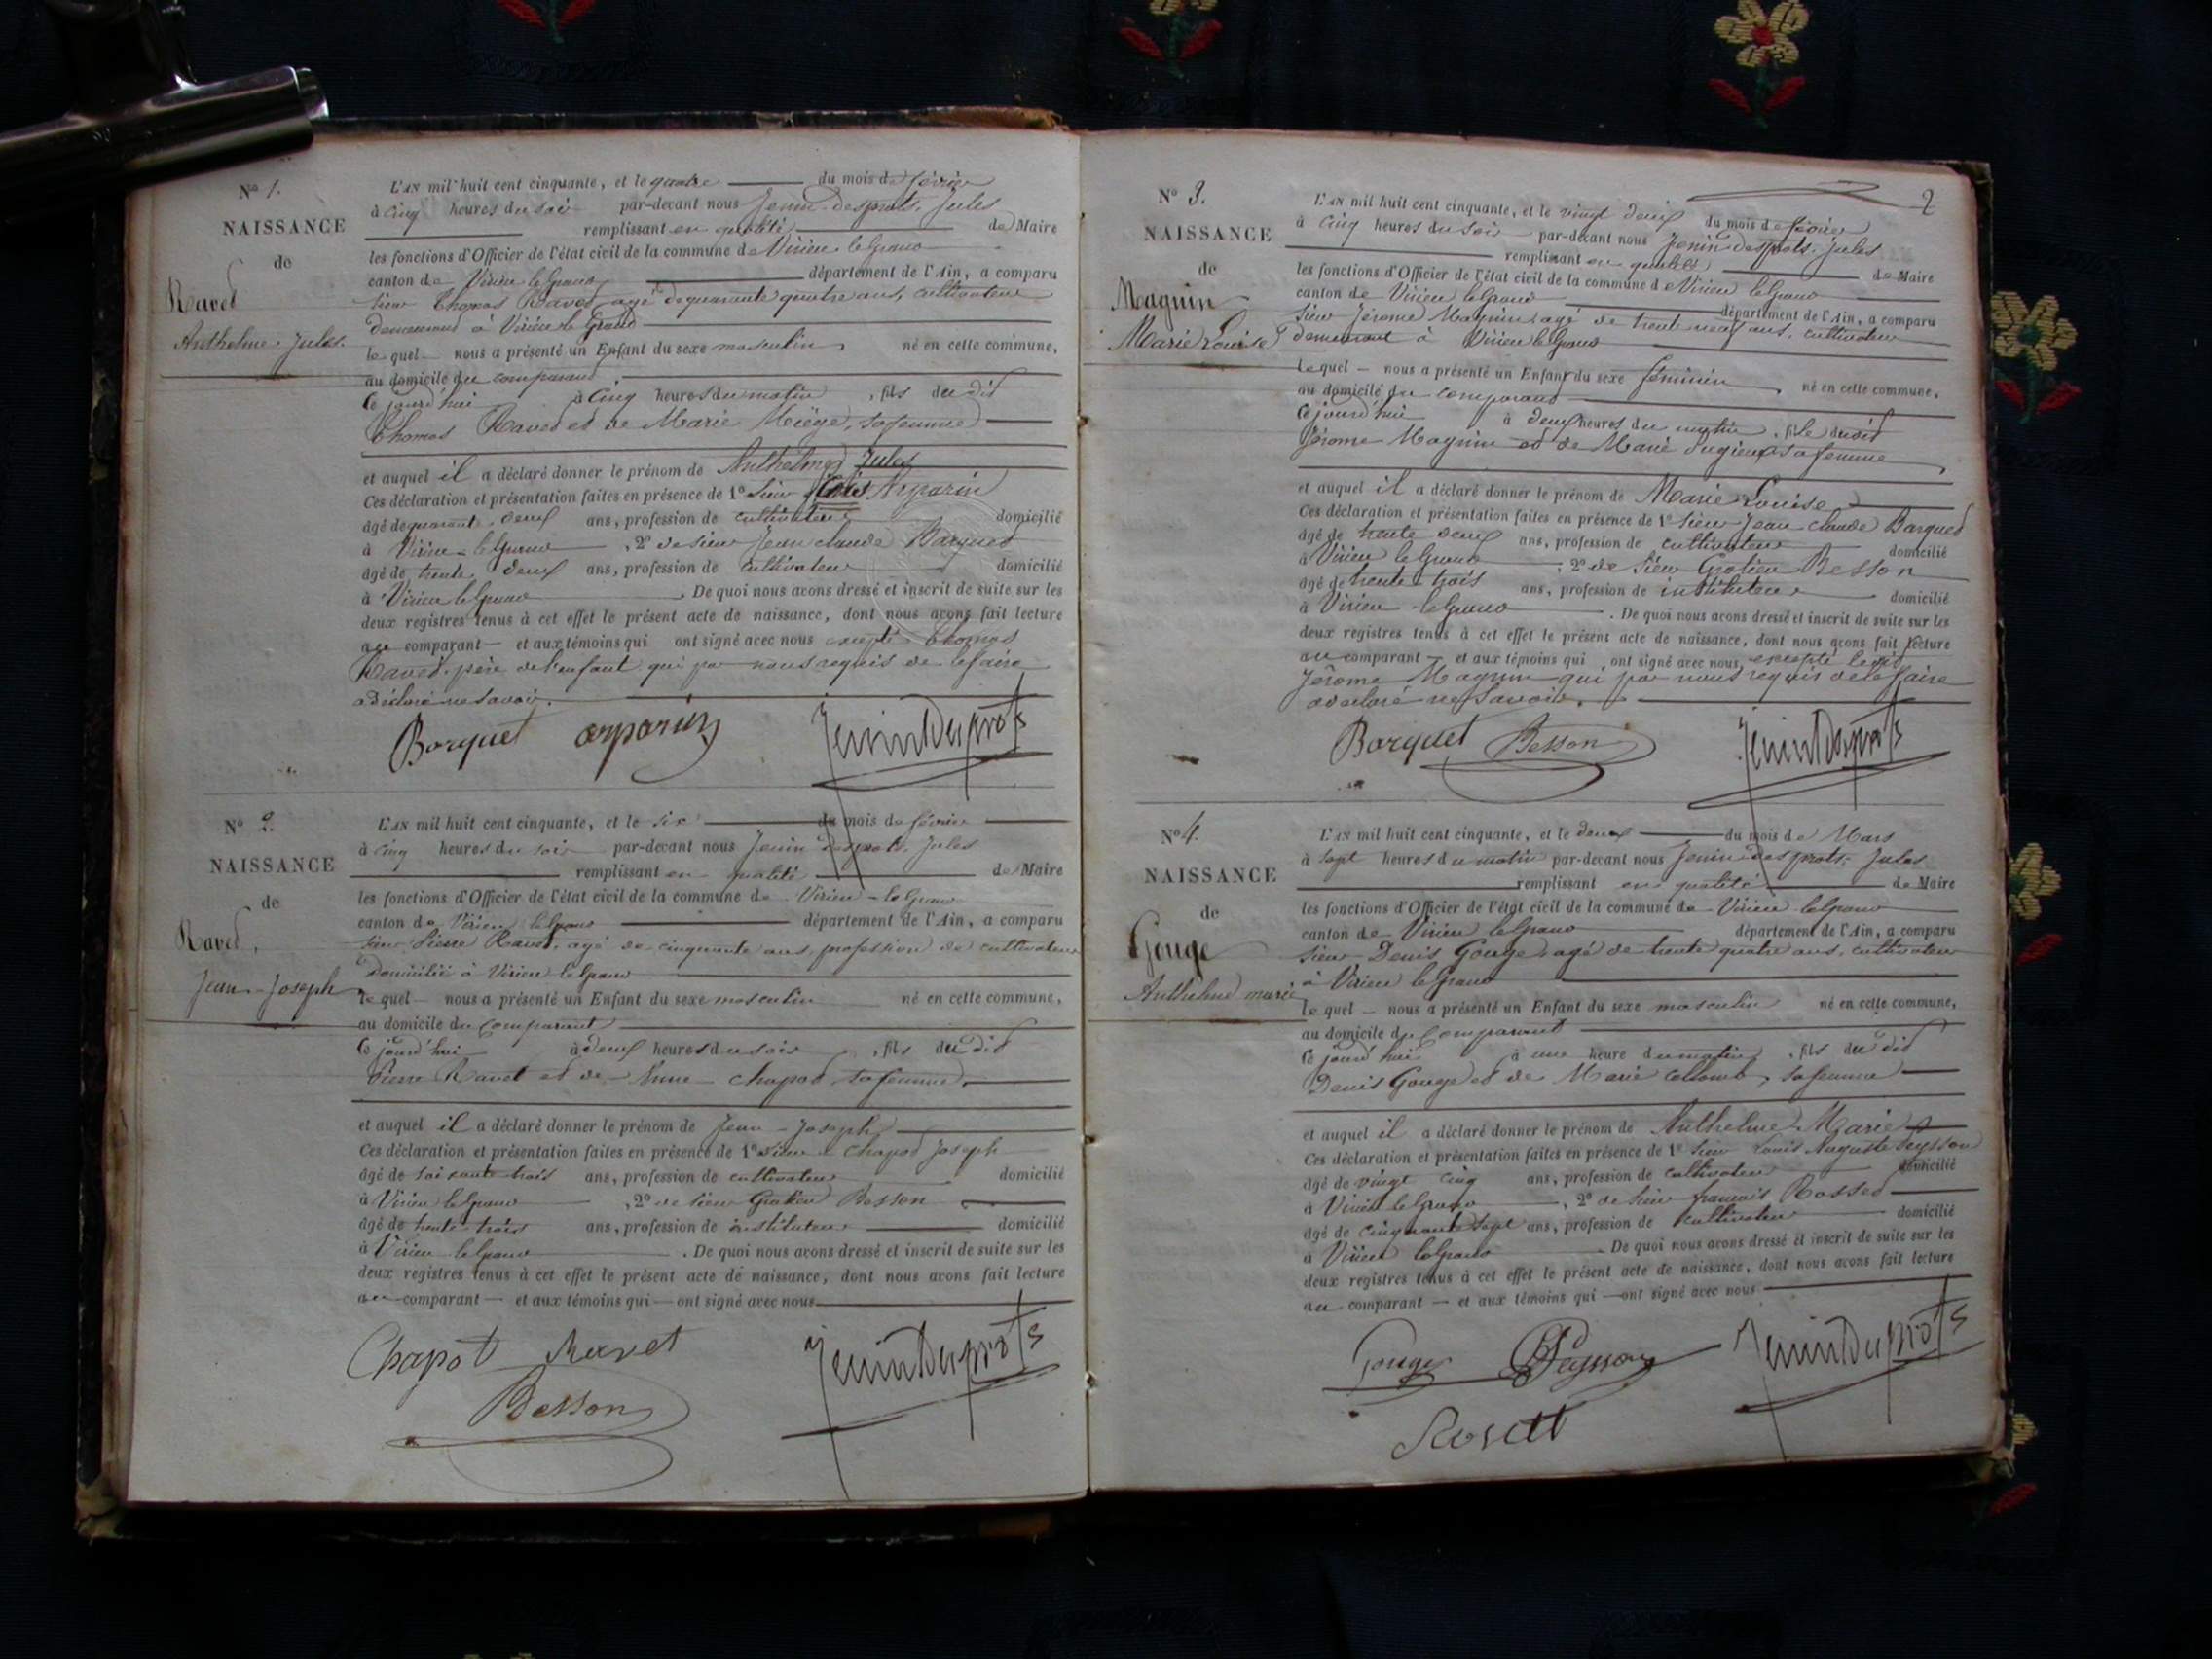 Nº 1.
NAISSANCE
de
Ravet
Anthelme Jules.
L'AN mil huit cent cinquante, et le quatre du mois de février
à cinq heures du soir par-devant nous Jenin-desprots, Jules
remplissant en qualité de Maire
les fonctions d'Officier de l'état civil de la commune de Virieu le Grand
canton de Virieu le Grand département de l'Ain, a comparu
sieur Thomas Ravet, agé de quarante quatre ans, cultivateur
demeurant à Virieu le Grand
lequel nous a présenté un Enfant du sexe masculin, né en cette commune,
au domicile du comparant,
ce jourd'hui à cinq heures du matin, fils du dit
Thomas Ravet et de Marie Miège, sa femme
et auquel il a déclaré donner le prénom de Anthelme Jules
Ces déclaration et présentation faites en présence de 1º sieur Arparin
âgé de quarante deux ans, profession de cultivateur domicilié
à Virieu-le Grand, 2º de sieur Jean claude Barquet
âgé de trente deux ans, profession de cultivateur domicilié
à Virieu le Grand. De quoi nous avons dressé et inscrit de suite sur les
deux registres tenus à cet effet le présent acte de naissance, dont nous avons fait lecture
au comparant et aux témoins qui ont signé avec nous excepté Thomas
Ravet père de l'enfant qui par nous requis de le faire
a déclaré ne savoir.
Barquet arparin Jenindesprots
Nº 2.
NAISSANCE
de
Ravet,
Jean-Joseph
L'AN mil huit cent cinquante, et le six du mois de février
à cinq heures du soir par-devant nous Jenin desprots, Jules
remplissant en qualité de Maire
les fonctions d'Officier de l'état civil de la commune de Virieu-le Grand
canton de Virieu le Grand département de l'Ain, a comparu
sieur Pierre Ravet, agé de cinquante ans profession de cultivateur
domicilié à Virieu le Grand
lequel nous a présenté un Enfant du sexe masculin né en cette commune,
au domicile du comparant
ce jourd'hui à deux heures du soir, fils du dit
Pierre Ravet et de Anne chapot sa femme.
et auquel il a déclaré donner le prénom de Jean-Joseph
Ces déclaration et présentation faites en présence de 1º sieur chapot Joseph
âgé de soixante trois ans, profession de cultivateur domicilié
à Virieu le Grand, 2º de sieur Gratien Besson
âgé de trente trois ans, profession de instituteur domicilié
à Virieu le Grand. De quoi nous avons dressé et inscrit de suite sur les
deux registres tenus à cet effet le présent acte de naissance, dont nous avons fait lecture
au comparant et aux témoins qui ont signé avec nous
Chapot Ravet Jenindesprots
Besson
2
Nº 3.
NAISSANCE
de
Magnin
Marie Louise
L'AN mil huit cent cinquante, et le vingt deux du mois de février
à cinq heures du soir par-devant nous Jenin desprots, Jules
remplissant en qualité de Maire
les fonctions d'Officier de l'état civil de la commune de Virieu le Grand
canton de Virieu le Grand département de l'Ain, a comparu
sieur Jérome Magnin agé de trente neuf ans, cultivateur
demeurant à Virieu le Grand
lequel nous a présenté un Enfant du sexe féminin, né en cette commune,
au domicile du comparant
ce jourd'hui à deux heures du matin, fille du dit
Jérome Magnin et de Marie Sugieux sa femme,
et auquel il a déclaré donner le prénom de Marie Louise
Ces déclaration et présentation faites en présence de 1º sieur Jean claude Barquet
âgé de trente deux ans, profession de cultivateur domicilié
à Virieu le Grand; 2º de sieur Gratien Besson
âgé de trente trois ans, profession de instituteur domicilié
à Virieu le Grand. De quoi nous avons dressé et inscrit de suite sur les
deux registres tenus à cet effet le présent acte de naissance, dont nous avons fait lecture
au comparant et aux témoins qui ont signé avec nous, excepté le dit
Jérome Magnin qui par nous requis de le faire
a déclaré ne savoir.
Barquet Besson Jenindesprots
Nº 4.
NAISSANCE
de
Gouge
Anthelme marie
L'AN mil huit cent cinquante, et le deux du mois de Mars
à sept heures du matin par-devant nous Jenin desprots, Jules
remplissant en qualité de Maire
les fonctions d'Officier de l'état civil de la commune de Virieu le Grand
canton de Virieu le Grand département de l'Ain, a comparu
sieur Denis Gouge agé de trente quatre ans, cultivateur
à Virieu le Grand
lequel nous a présenté un Enfant du sexe masculin né en cette commune,
au domicile du comparant
ce jourd'hui à une heure du matin, fils du dit
Denis Gouge et de Marie Collomb, sa femme
et auquel il a déclaré donner le prénom de Anthelme Marie
Ces déclaration et présentation faites en présence de 1º sieur Louis Auguste Peysson
âgé de vingt cinq ans, profession de cultivateur domicilié
à Virieu le Grand, 2º de sieur françois Rosset
âgé de cinquante sept ans, profession de cultivateur domicilié
à Virieu le Grand. De quoi nous avons dressé et inscrit de suite sur les
deux registres tenus à cet effet le présent acte de naissance, dont nous avons fait lecture
au comparant et aux témoins qui ont signé avec nous
Gouge Peysson Jenindesprots
Rosett